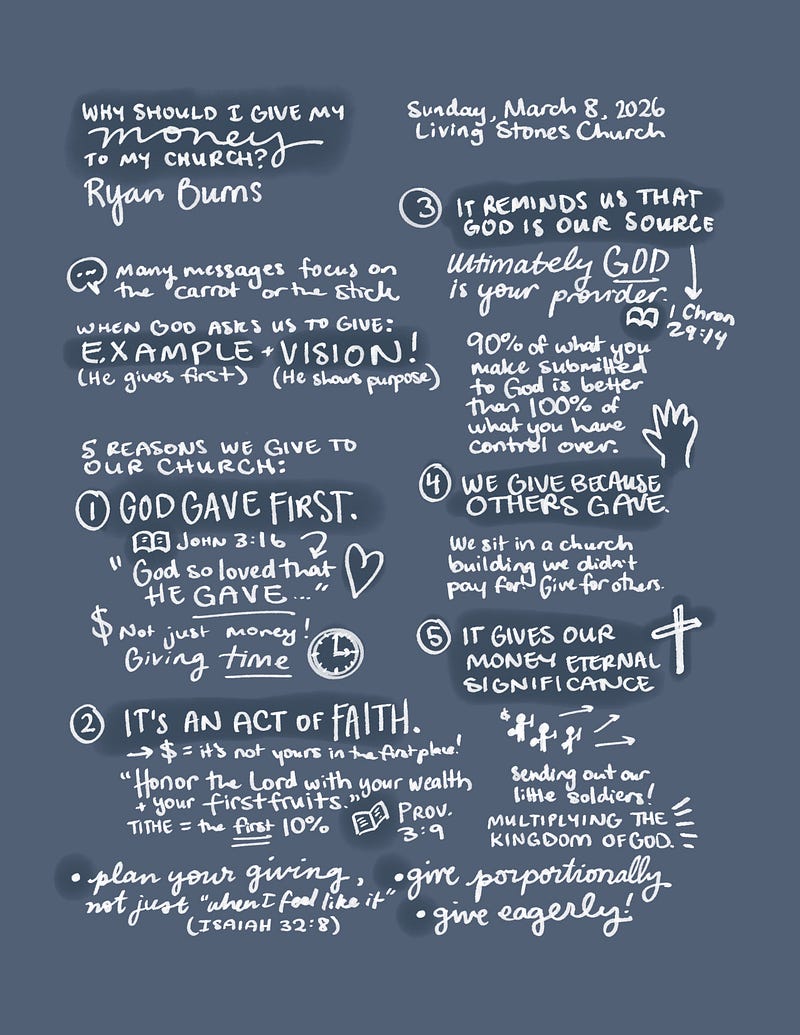 WHY SHOULD I GIVE MY
money
TO MY CHURCH?
Ryan Burns
Sunday, March 8, 2026
Living Stones Church
Many messages focus on
the "carrot" or the stick
WHEN GOD ASKS US TO GIVE:
EXAMPLE + VISION!
(He gives first) (He shows purpose)
5 REASONS WE GIVE TO
OUR CHURCH:
1 GOD GAVE FIRST.
JOHN 3:16
"God so loved that
HE GAVE..."
$ Not just money!
Giving time
2 IT'S AN ACT OF FAITH.
→ $ = it's not yours in the first place!
"Honor the Lord with your wealth
+ your firstfruits."
PROV.
3:9
TITHE = the first 10%
3 IT REMINDS US THAT
GOD IS OUR SOURCE
Ultimately GOD
is your provider.
1 Chron
29:14
90% of what you
make submitted
to God is better
than 100% of
what you have
control over.
4 WE GIVE BECAUSE
OTHERS GAVE.
We sit in a church
building we didn't
pay for! Give for others.
5 IT GIVES OUR
MONEY ETERNAL
SIGNIFICANCE
$
Sending out our
little soldiers!
MULTIPLYING THE
KINGDOM OF GOD.
• plan your giving,
not just "when I feel like it"
(ISAIAH 32:8)
• give porportionally
• give eagerly!